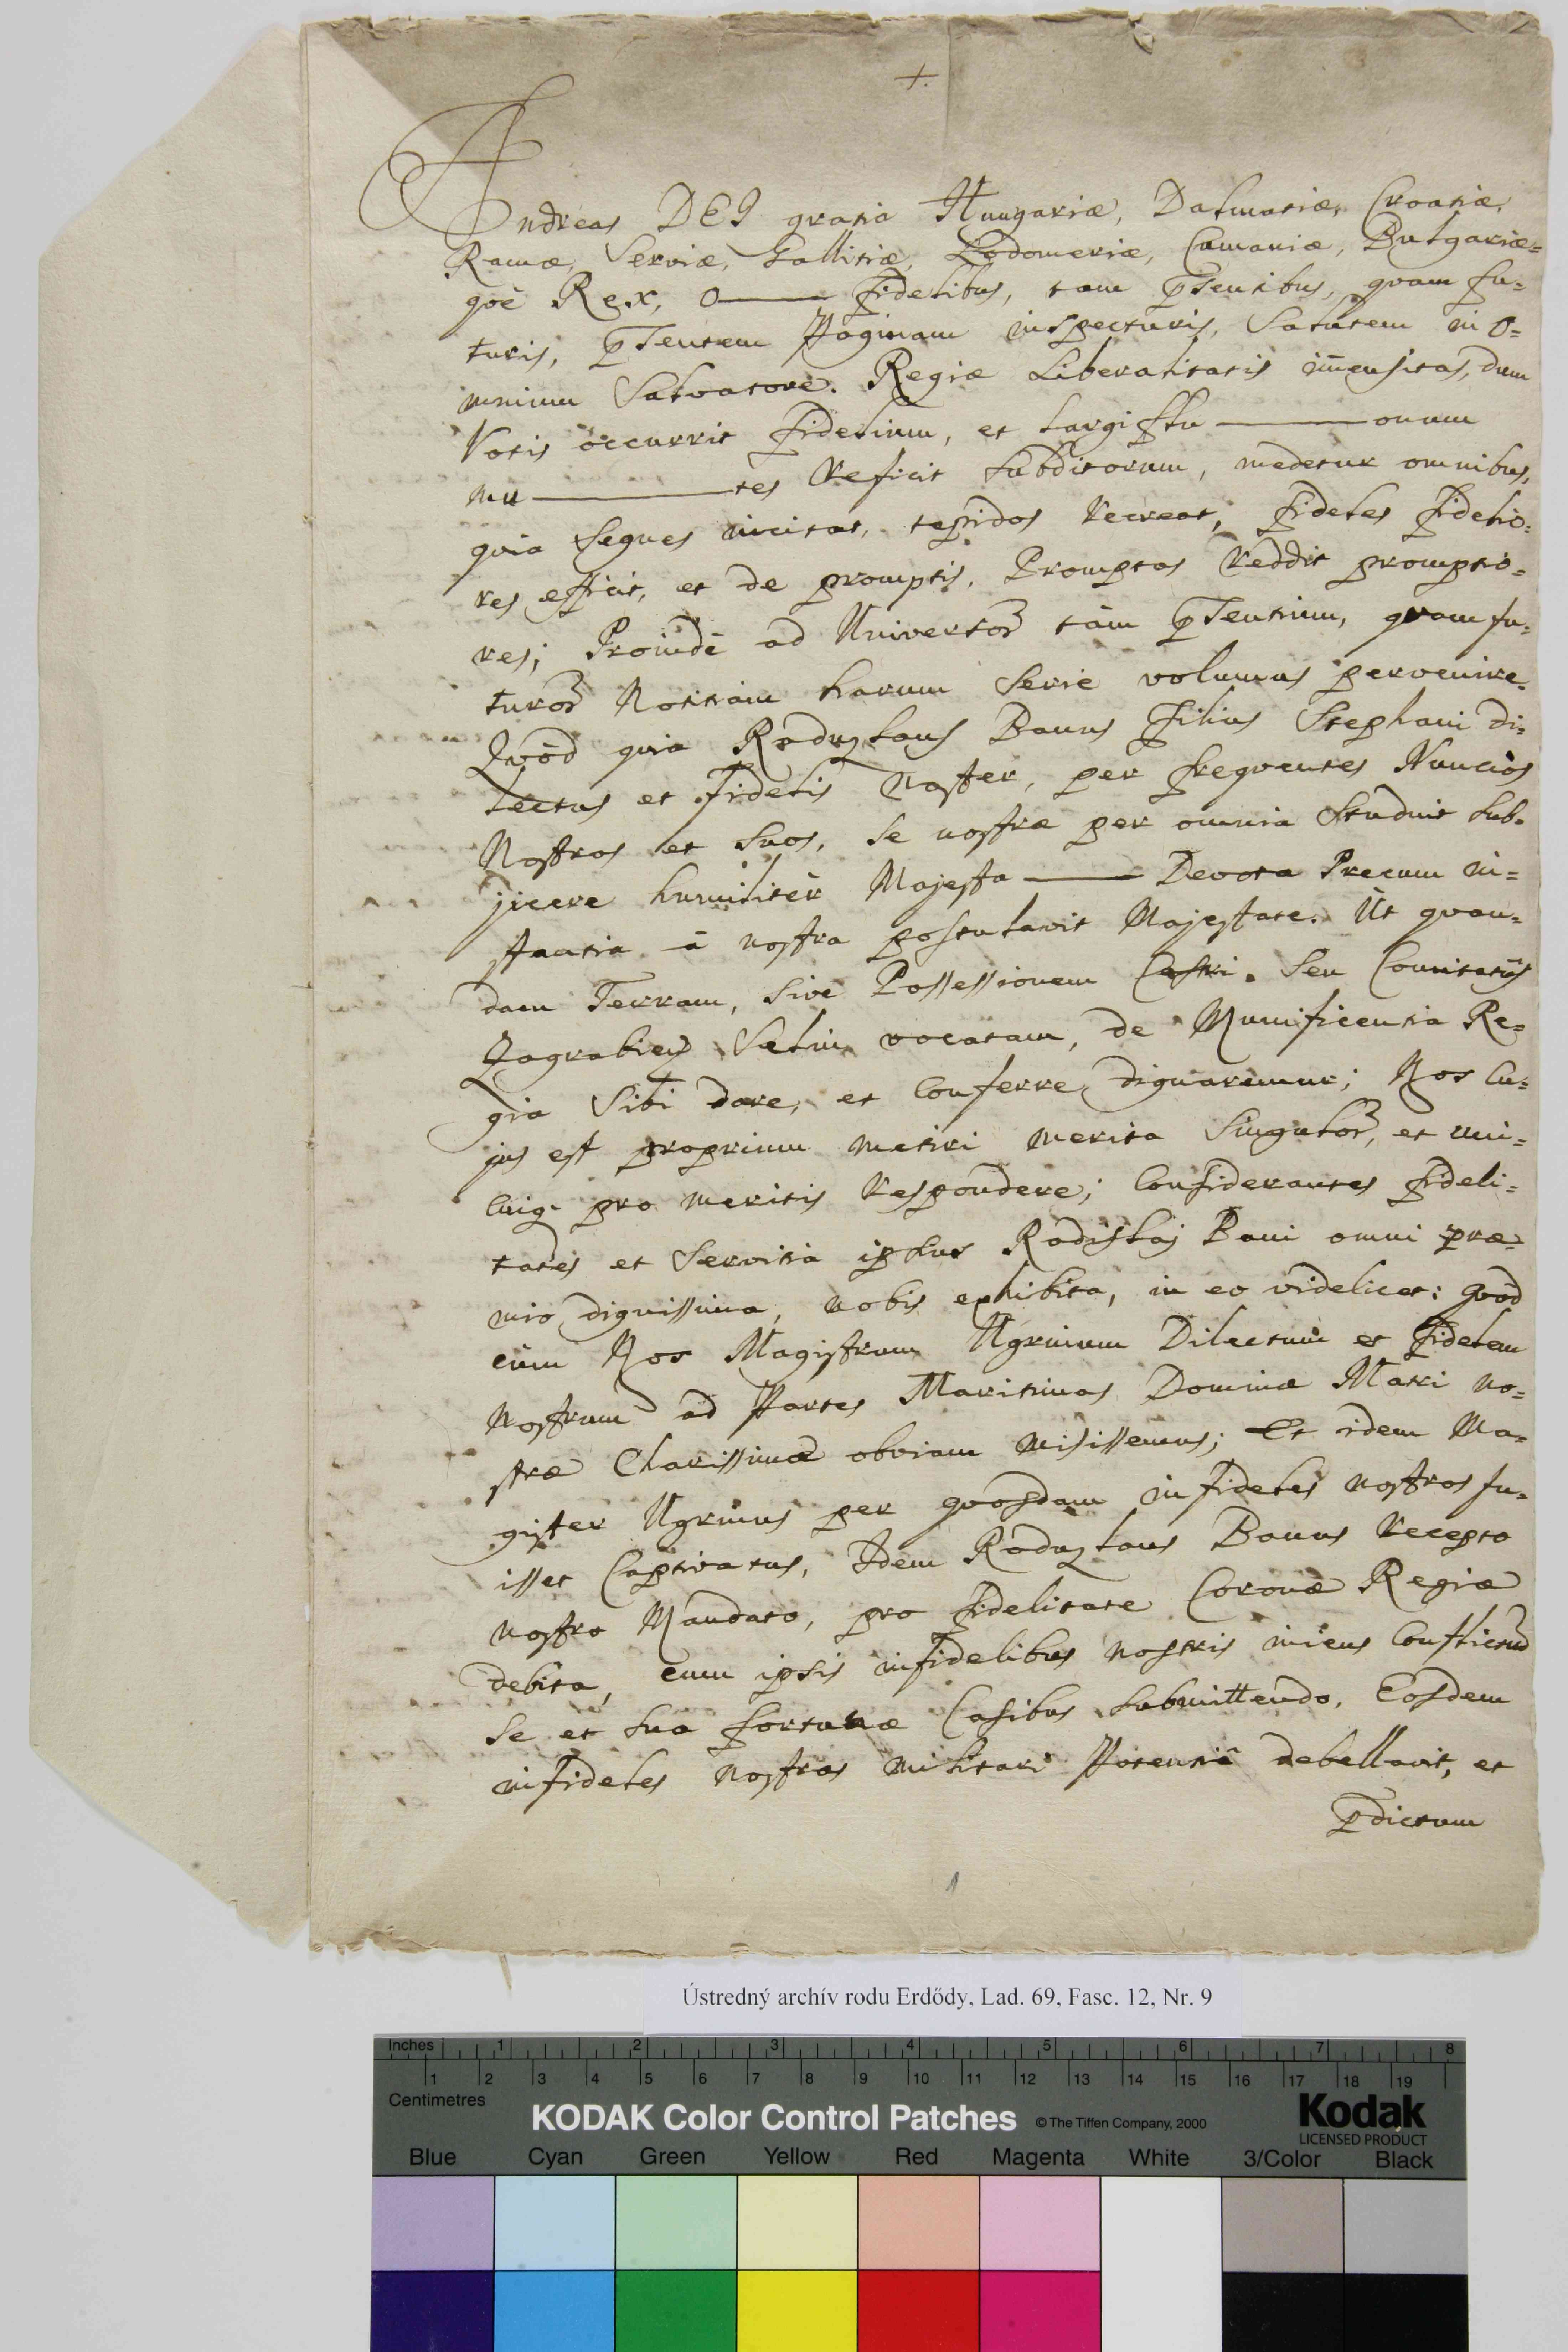 +.
Andreas DEI gratia Hungariæ, Dalmatiæ, Croatiæ,
Ramæ, Serviæ, Gallitiæ, Lodomeriæ, Cumaniæ, Bulgariæ=
qve Rex, O——— fidelibus, tam p̄sentibus, qvam fu=
turis, p̄sentem Paginam inspecturis, Salutem in o=
mnium Salvatore. Regiæ Liberalitatis im̄ensitas, dum
Votis occurrit fidelium, et Largi flu———onum
mu———tes reficit Subditorum, medetur omnibus,
qvia Segnes incitat, tepidos recreat, fideles fidelio=
res efficit, et de promptis, Promptos reddit promptio=
res; Proindè ad Universor̃ tàm p̄sentium, qvam fu=
turor̃ Notitiam harum Serie volumus pervenire.
Qvòd qvia Raduzlaus Banus filius Stephani di=
lectus et fidelis Noster, per freqventes Nuncios
Nostros et Suos, Se nostræ per omnia Studuit Sub=
jicere humilitèr Majesta——— Devota Precum in=
stantia à nostra postulavit Majestate. Ut qvan=
dam Terram, Sive Possessionem Castri. Seu Comitatûs
Zagrabien̄ Setin vocatam, de Munificentia Re=
gia Sibi dare, et Conferre dignaremur; Nos Cu=
jus est proprium metiri merita Singulor̃, et uni=
cuiq. pro meritis respondere; Considerantes fideli=
tates et Servitia ipsius Radislai Bani omni præ=
mio dignissima, nobis exhibita, in eo videlicet: qvòd
cùm Nos Magistrum Ugrinum Dilectum et fidelem
Nostrum ad Partes Maritimas Dominæ Matri no=
stræ Charissimæ obviam misissemus; Et idem Ma=
gister Ugrinus per qvosdam infideles nostros fu=
isset Captivatus, Idem Raduzlaus Banus recepto
nostro Mandato, pro fidelitate Coronæ Regiæ
debita, cum ipsis infidelibus nostris iniens Conflictũ
Se et Sua fortunæ Casibus Submittendo, Eosdem
infideles nostros militari Potentiâ debellavit, et
p̄dictum
1
Ústredný archív rodu Erdődy, Lad. 69, Fasc. 12, Nr. 9
Inches 1 2 3 4 5 6 7 8
1 2 3 4 5 6 7 8 9 10 11 12 13 14 15 16 17 18 19
Centimetres
KODAK Color Control Patches © The Tiffen Company, 2000 Kodak
LICENSED PRODUCT
Blue Cyan Green Yellow Red Magenta White 3/Color Black